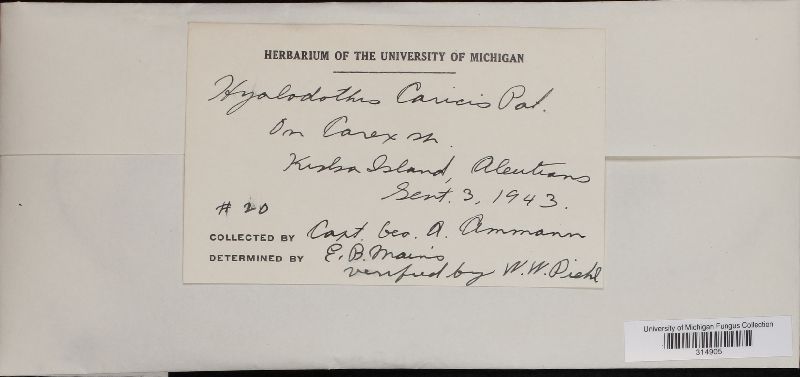 HERBARIUM OF THE UNIVERSITY OF MICHIGAN
Hyalodothis Caricis Pat.
On Carex sp.
Kiska Island, Aleutians
Sept. 3, 1943.
# 20
COLLECTED BY Capt. Geo. A. Ammann
DETERMINED BY E. B. Mains
verified by W. W. Diehl
University of Michigan Fungus Collection
314905